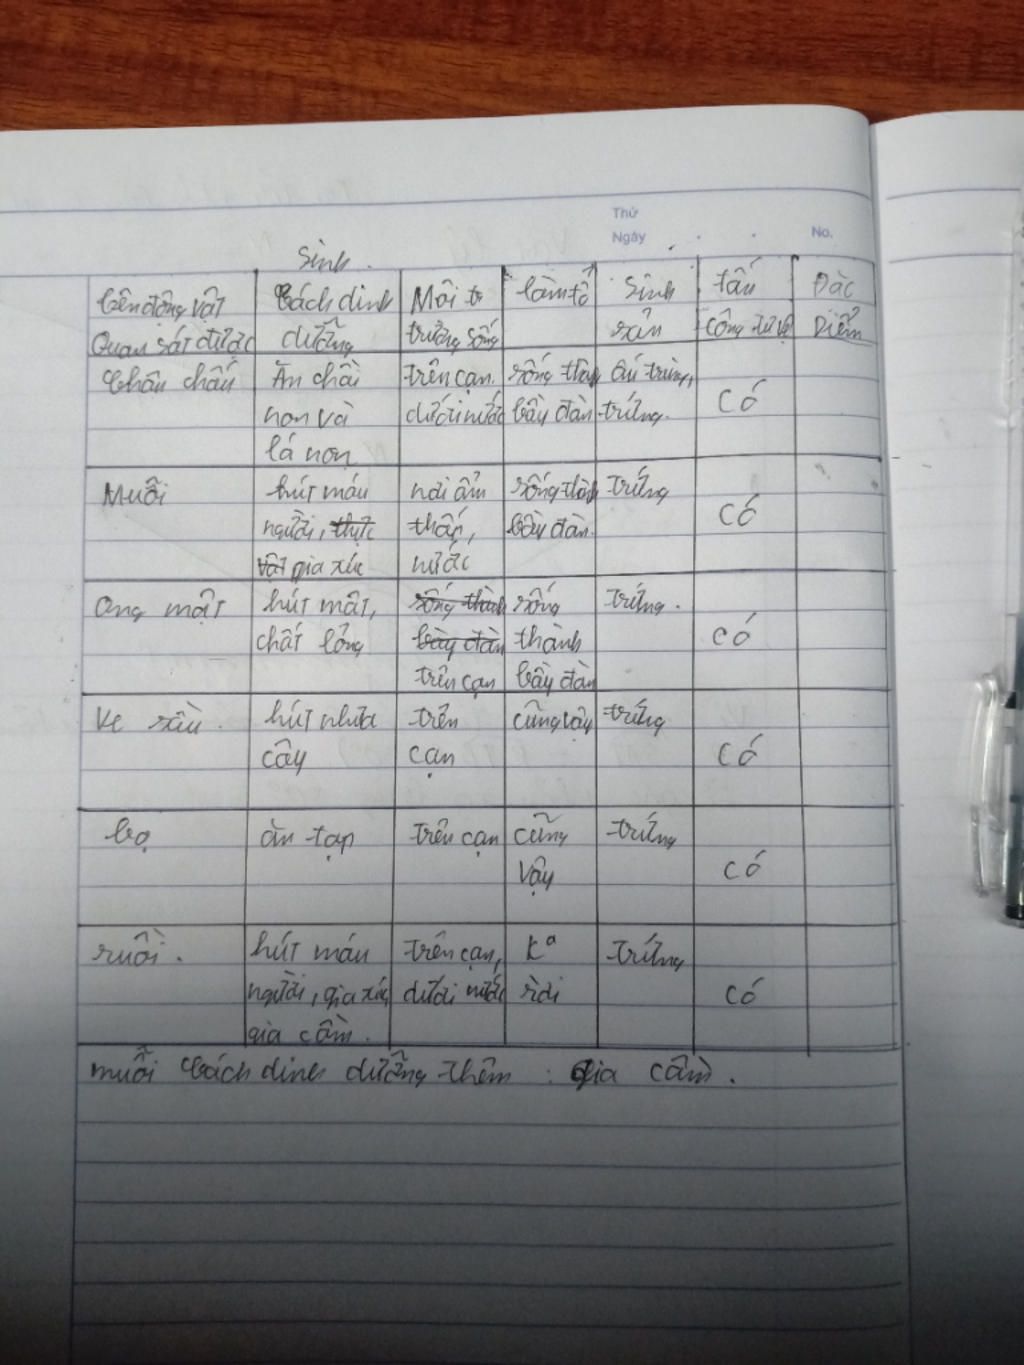 Thứ
Ngày
No.
Sinh.
Tên động vật Cách dinh Môi tr làm tổ Sinh tấn Đặc
Quan sát được dưỡng trường sống sản công tự vệ Điểm
Châu chấu Ăn chồi trên cạn. sống thành ấu trùng,
non và dưới nước bầy đàn trứng. có
lá non
Muỗi hút máu nơi ẩm sống thành trứng
người, thực thấp, bầy đàn. có
vật gia xúc nước
Ong mật hút mật, sống thành sống trứng.
chất lỏng bầy đàn thành có
trên cạn bầy đàn
Ve sầu. hút nhựa trên cũng vậy trứng
cây cạn có
bọ ăn tạp trên cạn cũng trứng
vậy có
ruồi. hút máu trên cạn, trứng
người, gia xúc, dưới nước rời có
gia cầm.
muỗi Cách dinh dưỡng thêm : gia cầm.